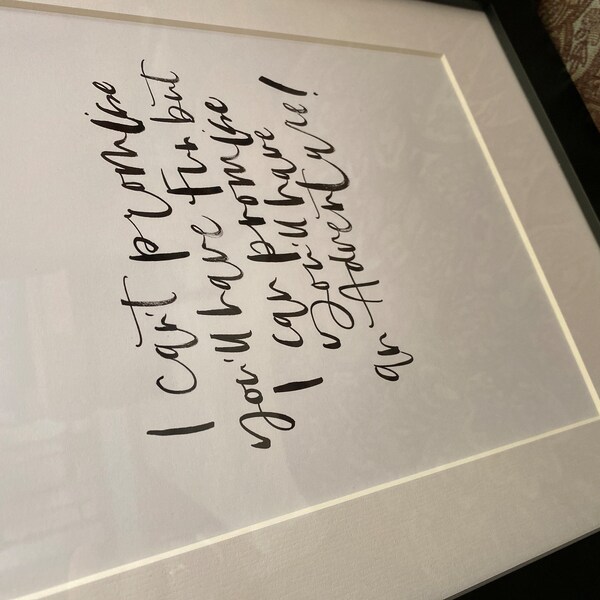 I can't promise
you'll have fun but
I can promise
you'll have
an Adventure!